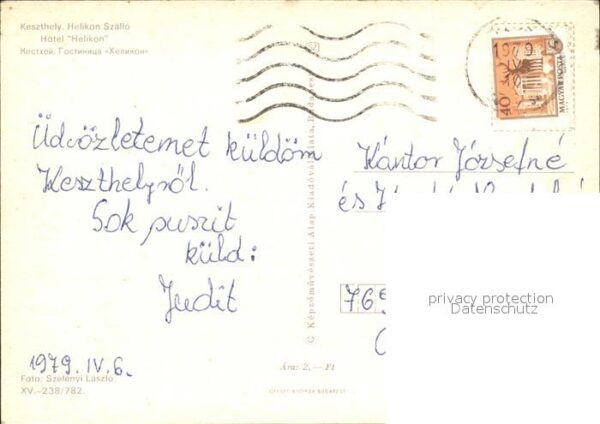 Keszthely. Helikon Szálló
Hotel "Helikon"
Кестхей. Гостиница «Хеликон»
1979
40
MAGYAR POSTA
Üdvözletemet küldöm
Keszthelyről.
Sok puszit
küld:
Judit
1979. IV. 6.
Foto: Szelényi László
XV.–238/782.
© Képzőművészeti Alap Kiadóvállalata, Budapest
Ára: 2,— Ft
OFFSET-NYOMDA BUDAPEST
Kántor Józsefné
és
769
privacy protection
Datenschutz